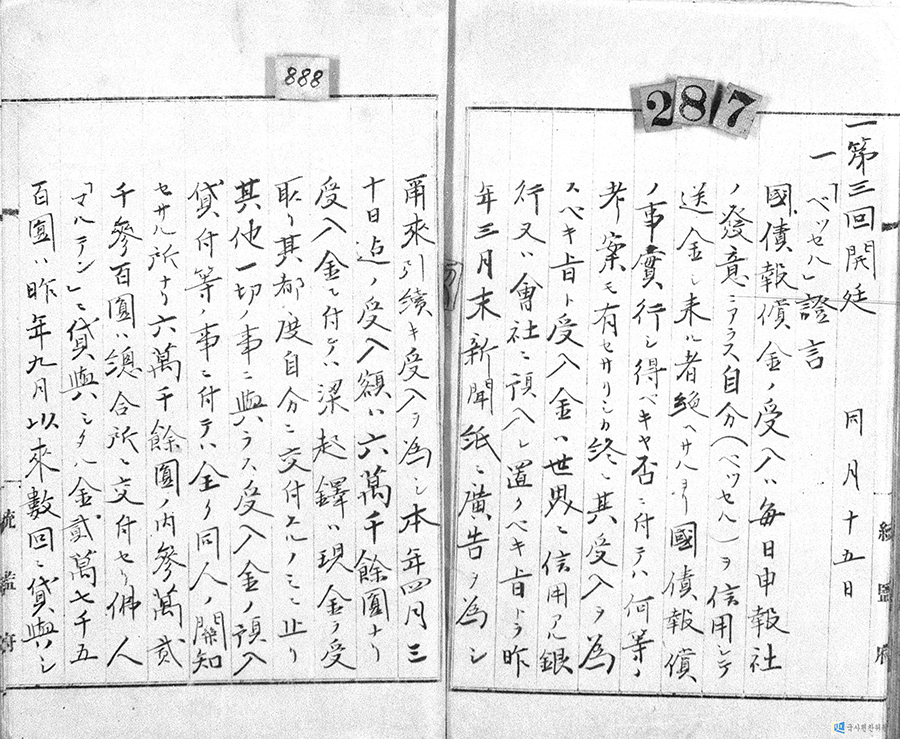 287
一第三回開廷 同月十五日
一「ベッセル」證言
國債報償金ノ受入ハ毎日申報社
ノ發意ニアラス自分(ベッセル)ヲ信用シテ
送金シ来ル者絶ヘサルヨリ國債報償
ノ事實行シ得ベキヤ否ニ付テハ何等ノ
考案モ有セサリシカ終ニ其受入ヲ為
スベキ旨ト受入金ハ世界ニ信用アル銀
行又ハ會社ニ預ヘレ置クベキ旨トヲ昨
年三月末新聞紙ニ廣告ヲ為シ
統監府
888
爾來引續キ受入ヲ為シ本年四月三
十日迠ノ受入額ハ六萬千餘圓ナリ
受入金ニ付テハ梁起鐸ハ現金ヲ受
取リ其都度自分ニ交付スルノミニ止リ
其他一切ノ事ニ與ラス受入金ノ預入
貸付等ノ事ニ付テハ全ク同人ノ關知
セサル所ナリ六萬千餘圓ノ内參萬貳
千參百圓ハ總合所ニ交付セリ佛人
「マルテン」ニ貸與シタル金貳萬七千五
百圓ハ昨年九月以來數回ニ貸與シ
統監府
국사편찬위원회